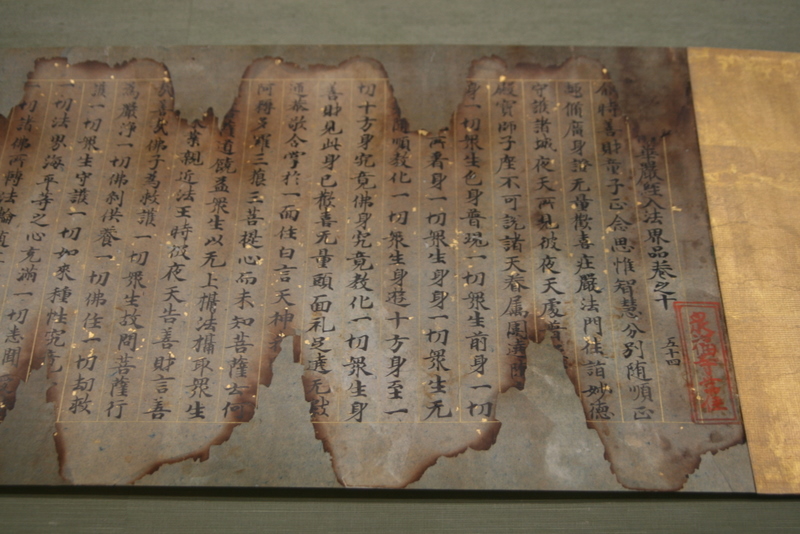 嚴經入法界品卷之十
五十四
時善財童子正念思惟智慧分別随順正
无量歡喜莊嚴法門往詣妙德
守護諸城夜天所見彼夜天處普
殿寳師子座不可說諸天眷属圍遶
身一切衆生色身普現一切衆生前身一切
所著身一切衆生身身一切衆生无
随順教化一切衆生身遊十方身至一
切十方身究竟佛身究竟教化一切衆生身
善財見此身已歡喜无量頭面礼足遶无數
恭敬合掌於一面住白言天神
阿耨多羅三藐三菩提心而未知菩薩云何
道饒益衆生以无上攝法攝取衆生
業親近法王時彼夜天告善財言善
哉善哉佛子為救護一切衆生故問菩薩行
為嚴淨一切佛刹供養一切佛住一切劫救
護一切衆生守護一切如來種性究竟
一切法界海平等之心充滿一切悉聞
一切諸佛所轉法輪随